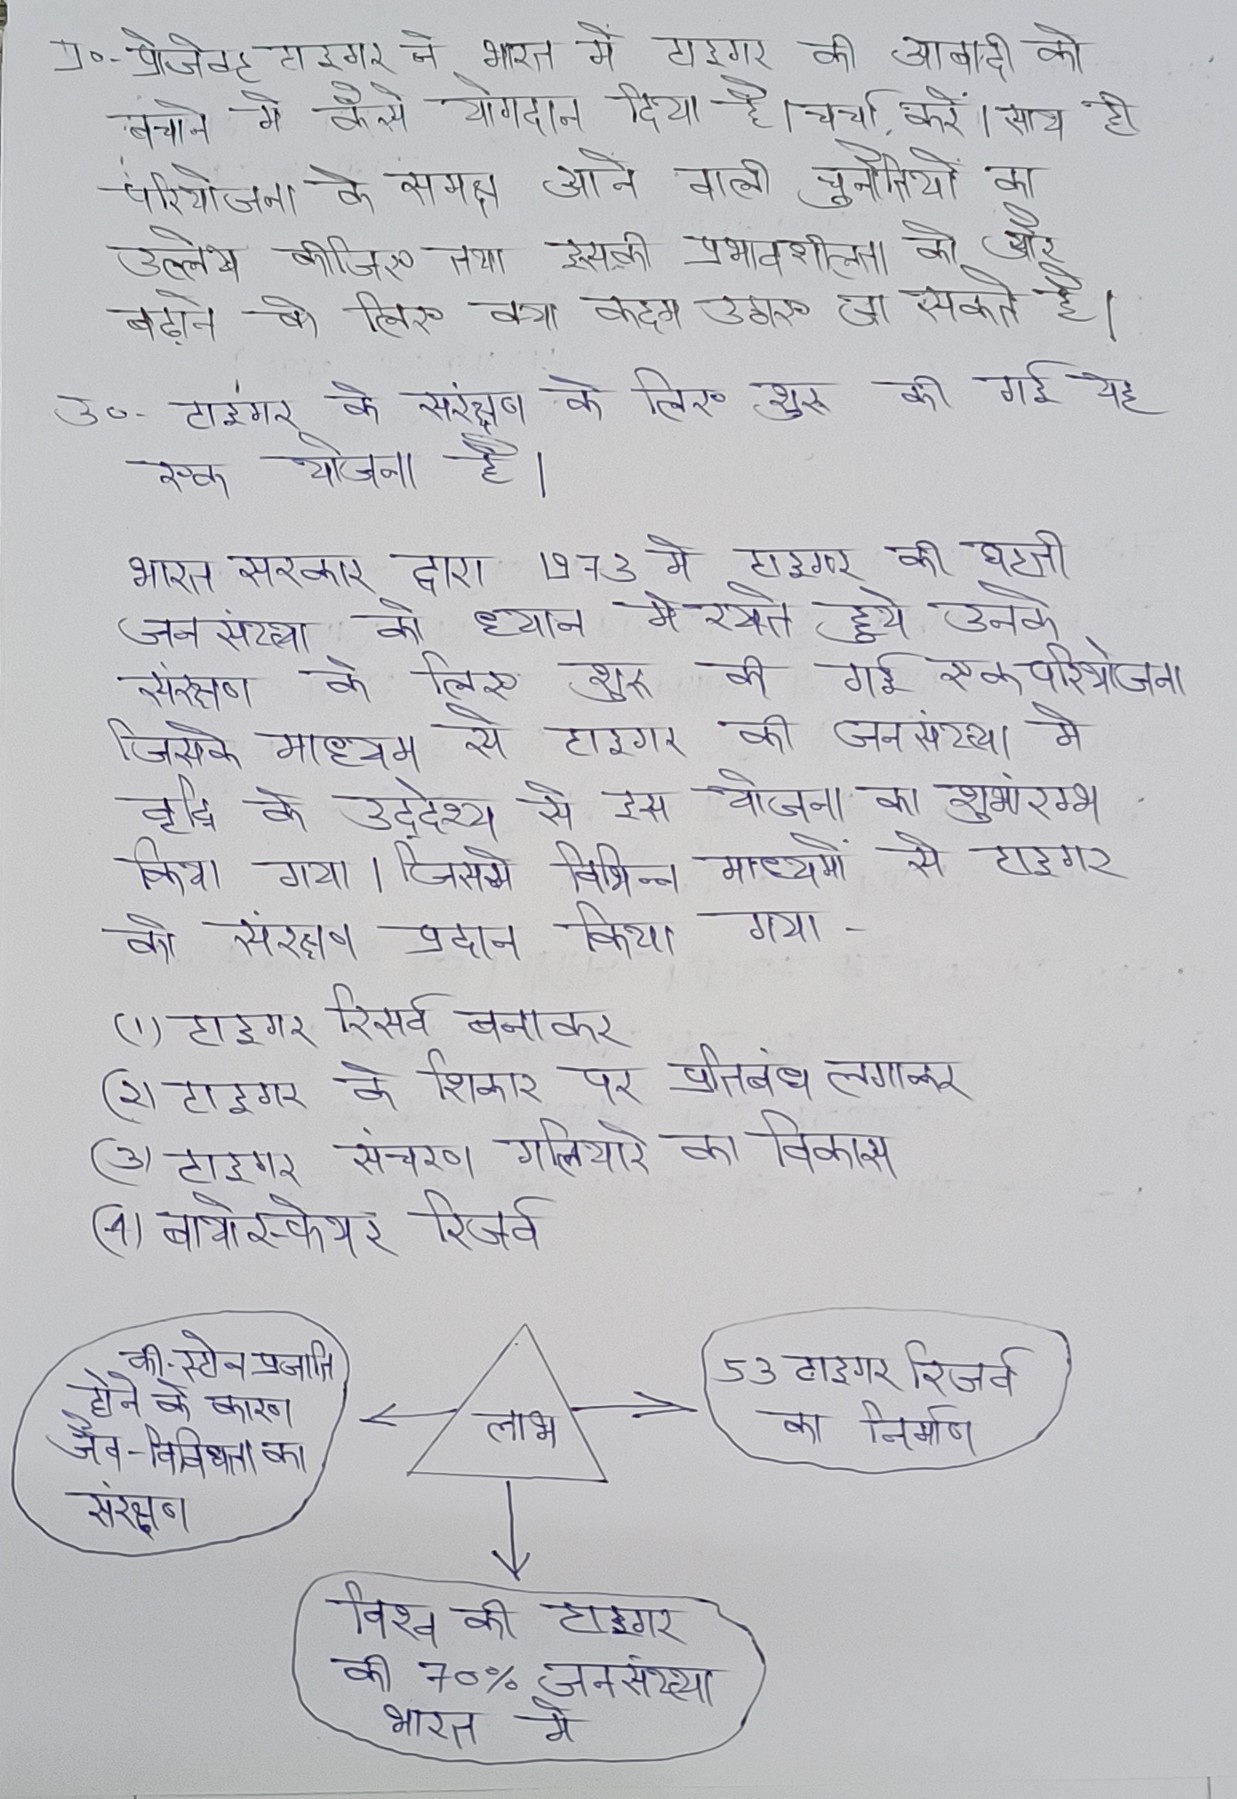 प्र०- प्रोजेक्ट टाइगर ने भारत में टाइगर की आबादी को
बचाने में कैसे योगदान दिया है। चर्चा करें। साथ ही
परियोजना के समक्ष आने वाली चुनौतियों का
उल्लेख कीजिए तथा इसकी प्रभावशीलता को और
बढ़ाने के लिए क्या कदम उठाए जा सकते है।
उ०- टाइगर के संरक्षण के लिए शुरू की गई यह
एक योजना है।
भारत सरकार द्वारा 1973 मे टाइगर की घटती
जनसंख्या को ध्यान मे रखते हुये उनके
संरक्षण के लिए शुरू की गई एक परियोजना
जिसके माध्यम से टाइगर की जनसंख्या मे
वृद्धि के उद्देश्य से इस योजना का शुभारंम्भ
किया गया। जिसमे विभिन्न माध्यमों से टाइगर
को संरक्षण प्रदान किया गया -
(1) टाइगर रिसर्व बनाकर
(2) टाइगर के शिकार पर प्रतिबंध लगाकर
(3) टाइगर संचरण गलियारे का विकास
(4) बायोस्फेयर रिजर्व
की-स्टोन प्रजाति
होने के कारण
जैव-विविधता का
संरक्षण
लाभ
53 टाइगर रिजर्व
का निर्माण
विश्व की टाइगर
की 70% जनसंख्या
भारत मे